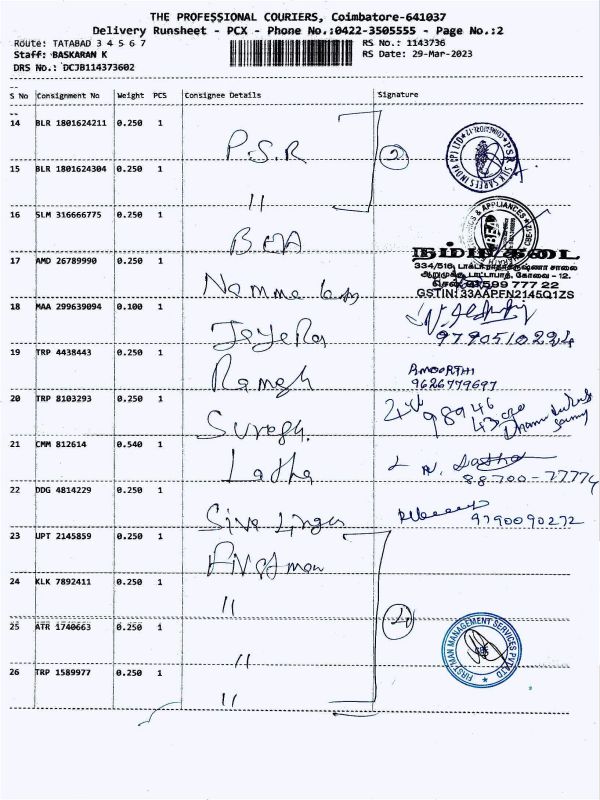 THE PROFESSIONAL COURIERS, Coimbatore-641037
Delivery Runsheet - PCX - Phone No.:0422-3505555 - Page No.:2
Route: TATABAD 3 4 5 6 7 RS No.: 1143736
Staff: BASKARAN K RS Date: 29-Mar-2023
DRS No.: DCJB114373602
S No Consignment No Weight PCS Consignee Details Signature
14 BLR 1801624211 0.250 1 P.S.R
2
15 BLR 1801624304 0.250 1 "
PSR SILK SAREES INDIA (P) LTD
16 SLM 316666775 0.250 1 BEA
& APPLIANCES
BEA
17 AMD 26789990 0.250 1 Namma
நம்ம கடை
334/516, டாக்டர் ராதாகிருஷ்ணா சாலை
ஆறுமுக்கு, டாடாபாத், கோவை - 12.
599 777 22
GSTIN: 33AAPFN2145Q1ZS
18 MAA 299639094 0.100 1
19 TRP 4438443 0.250 1 Ramesh
AMOORTHI
9626779697
20 TRP 8103293 0.250 1 Suresh.
98946
21 CMM 812614 0.540 1 Latha
88700-77774
22 DDG 4814229 0.250 1 Siva Lingam
9790090272
23 UPT 2145859 0.250 1 Firstman
24 KLK 7892411 0.250 1 "
4
25 ATR 1740663 0.250 1 "
26 TRP 1589977 0.250 1 "
FIRSTMAN MANAGEMENT SERVICES PVT LTD
CBE